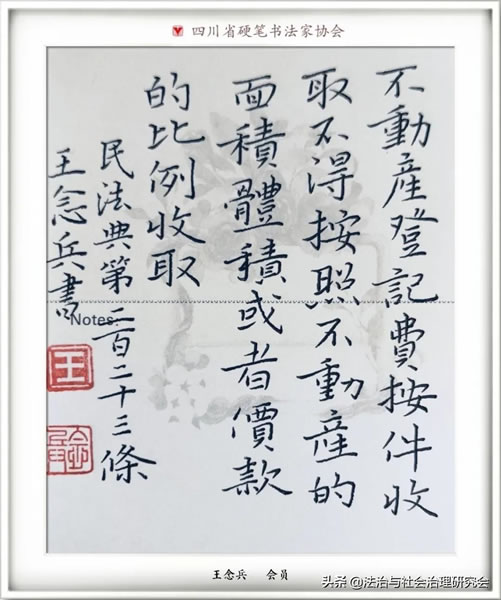 四川省硬笔书法家协会
不動産登記費按件收
取不得按照不動産的
面積體積或者價款
的比例收取
民法典第二百二十三條
王念兵書
Notes:
王
王念兵 会员
头条 @法治与社会治理研究会